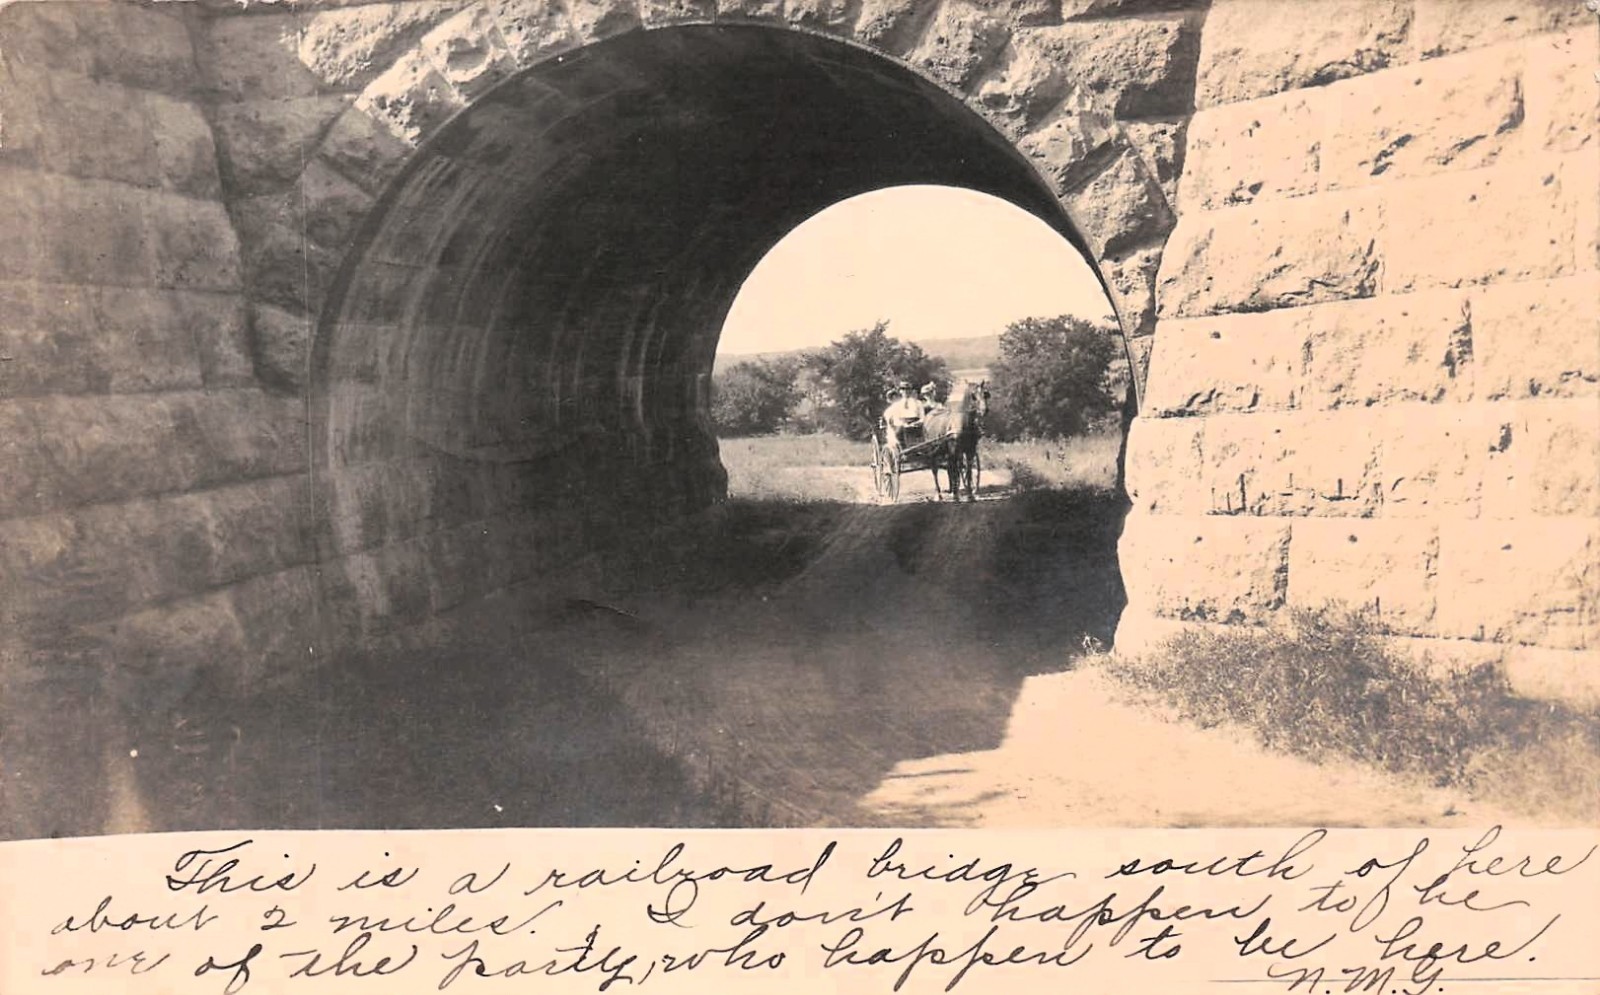 This is a railroad bridge south of here
about 2 miles. I don't happen to be
one of the party, who happen to be here.
N. M. G.